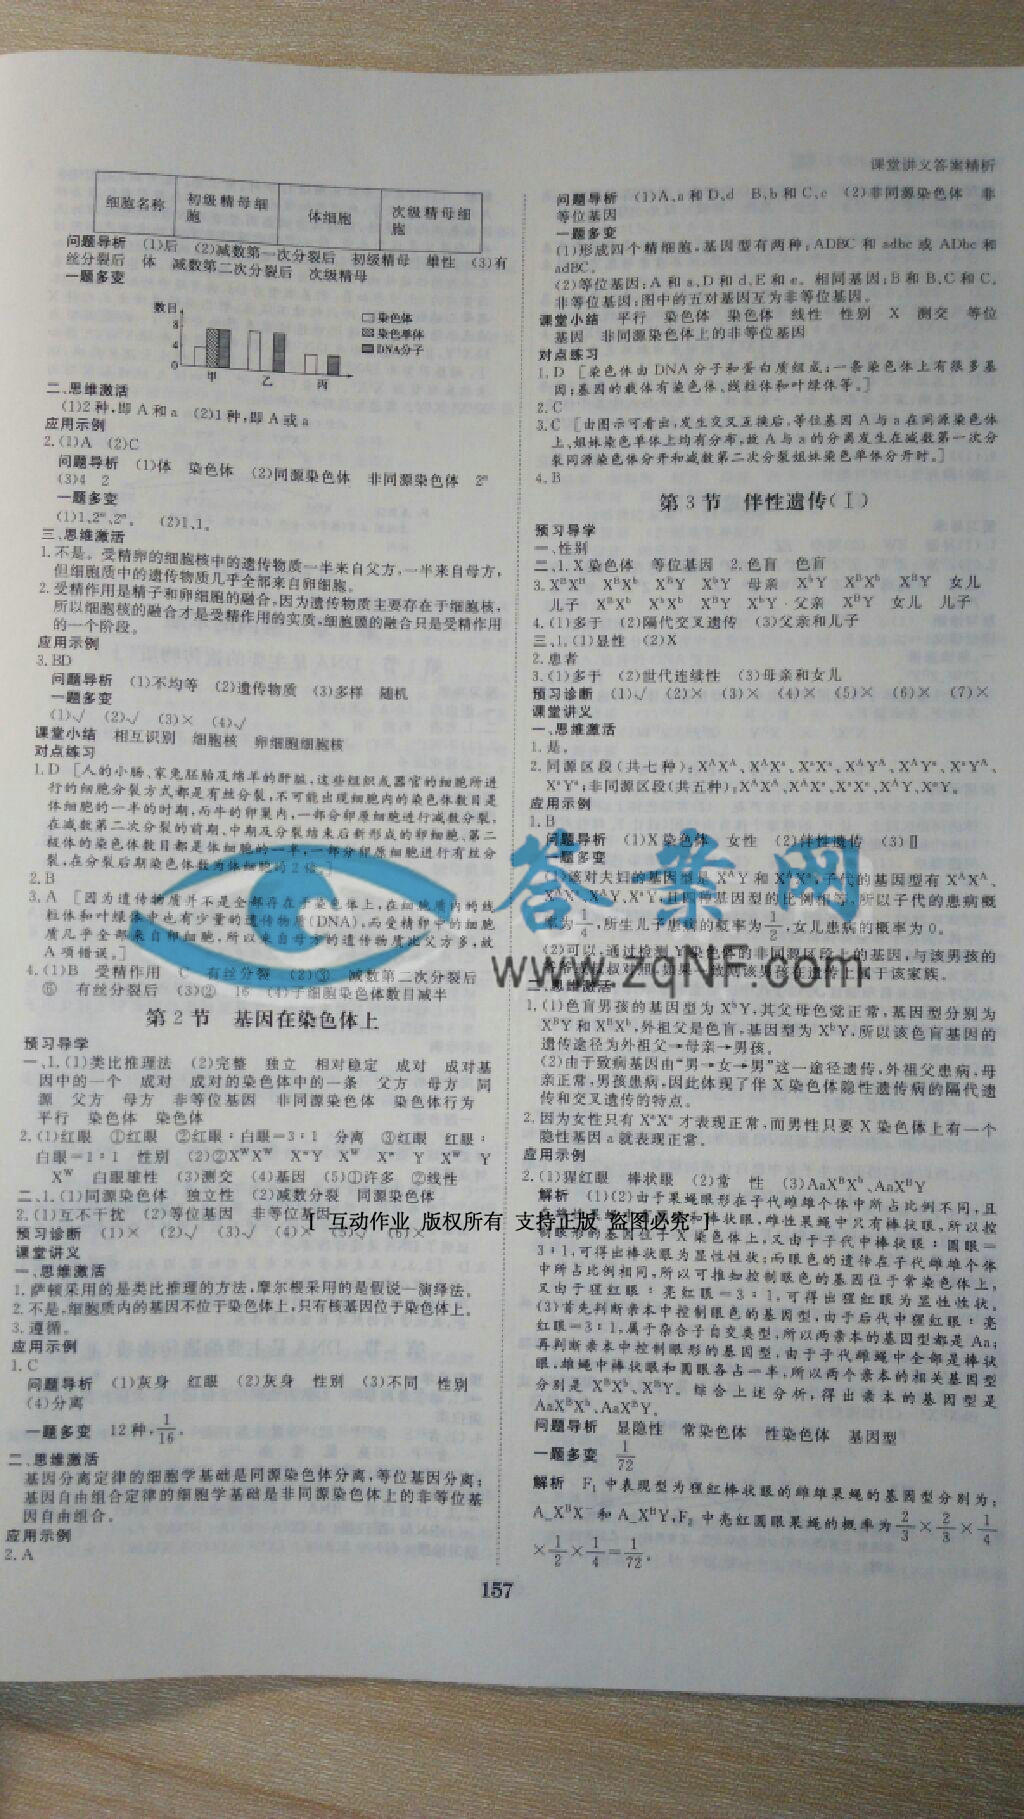 课堂讲义答案精析
细胞名称 初级精母细胞 体细胞 次级精母细胞
问题导析 (1)后 (2)减数第一次分裂后 初级精母 雄性 (3)有
丝分裂后 体 减数第二次分裂后 次级精母
一题多变
数目
8
4
0
甲 乙 丙
染色体
染色单体
DNA分子
二、思维激活
(1)2种,即A和a (2)1种,即A或a
应用示例
2.(1)A (2)C
问题导析 (1)体 染色体 (2)同源染色体 非同源染色体 2ⁿ
(3)4 2
一题多变
(1)1、2ⁿ、2ⁿ。 (2)1、1。
三、思维激活
1.不是。受精卵的细胞核中的遗传物质一半来自父方,一半来自母方,
但细胞质中的遗传物质几乎全部来自卵细胞。
2.受精作用是精子和卵细胞的融合,因为遗传物质主要存在于细胞核,
所以细胞核的融合才是受精作用的实质,细胞膜的融合只是受精作用
的一个阶段。
应用示例
3.BD
问题导析 (1)不均等 (2)遗传物质 (3)多样 随机
一题多变
(1)√ (2)√ (3)× (4)√
课堂小结 相互识别 细胞核 卵细胞细胞核
对点练习
1.D [人的小肠、家兔胚胎及绵羊的肝脏,这些组织或器官的细胞所进
行的细胞分裂方式都是有丝分裂,不可能出现细胞内的染色体数目是
体细胞的一半的时期,而牛的卵巢内,一部分卵原细胞进行减数分裂,
在减数第二次分裂的前期、中期及分裂结束后新形成的卵细胞、第二
极体的染色体数目都是体细胞的一半,一部分卵原细胞进行有丝分
裂,在分裂后期染色体数为体细胞的2倍。]
2.B
3.A [因为遗传物质并不是全部存在于染色体上,在细胞质内的线
粒体和叶绿体中也有少量的遗传物质(DNA),而受精卵中的细胞
质几乎全部来自卵细胞,所以来自母方的遗传物质比父方多,故
A项错误。]
4.(1)B 受精作用 C 有丝分裂 (2)③ 减数第二次分裂后
⑤ 有丝分裂后 (3)② 16 (4)子细胞染色体数目减半
第2节 基因在染色体上
预习导学
一、1.(1)类比推理法 (2)完整 独立 相对稳定 成对 成对基
因中的一个 成对 成对的染色体中的一条 父方 母方 同
源 父方 母方 非等位基因 非同源染色体 染色体行为
平行 染色体 染色体
2.(1)红眼 ①红眼 ②红眼∶白眼=3∶1 分离 ③红眼 红眼∶
白眼=1∶1 性别 (2)②XᵂXᵂ XʷY Xᵂ Xʷ Y Xᵂ Y
Xᵂ 白眼雄性 (3)测交 (4)基因 (5)①许多 ②线性
二、1.(1)同源染色体 独立性 (2)减数分裂 同源染色体
2.(1)互不干扰 (2)等位基因 非等位基因
[ 互动作业 版权所有 支持正版 盗图必究 ]
预习诊断 (1)× (2)√ (3)√ (4)× (5)√ (6)×
课堂讲义
一、思维激活
1.萨顿采用的是类比推理的方法,摩尔根采用的是假说—演绎法。
2.不是,细胞质内的基因不位于染色体上,只有核基因位于染色体上。
3.遵循。
应用示例
1.C
问题导析 (1)灰身 红眼 (2)灰身 性别 (3)不同 性别
(4)分离
一题多变 12种,1/16。
二、思维激活
基因分离定律的细胞学基础是同源染色体分离,等位基因分离;
基因自由组合定律的细胞学基础是非同源染色体上的非等位基
因自由组合。
应用示例
2.A
问题导析 (1)A、a和D、d B、b和C、c (2)非同源染色体 非
等位基因
一题多变
(1)形成四个精细胞,基因型有两种;ADBC和adbc或ADbc和
adBC。
(2)等位基因:A和a、D和d、E和e。相同基因:B和B、C和C。
非等位基因:图中的五对基因互为非等位基因。
课堂小结 平行 染色体 染色体 线性 性别 X 测交 等位
基因 非同源染色体上的非等位基因
对点练习
1.D [染色体由DNA分子和蛋白质组成;一条染色体上有很多基
因;基因的载体有染色体、线粒体和叶绿体等。]
2.C
3.C [由图示可看出,发生交叉互换后,等位基因A与a在同源染色体
上、姐妹染色单体上均有分布,故A与a的分离发生在减数第一次分
裂同源染色体分开和减数第二次分裂姐妹染色单体分开时。]
4.B
第3节 伴性遗传(Ⅰ)
预习导学
一、性别
二、1.X染色体 等位基因 2.色盲 色盲
3.XᴮXᴮ XᴮXᵇ XᴮY XᵇY 母亲 XᵇY XᴮXᵇ XᴮY 女儿
儿子 XᴮXᵇ XᵇXᵇ XᴮY XᵇY 父亲 XᴮY 女儿 儿子
4.(1)多于 (2)隔代交叉遗传 (3)父亲和儿子
三、1.(1)显性 (2)X
2.患者
3.(1)多于 (2)世代连续性 (3)母亲和女儿
预习诊断 (1)√ (2)× (3)× (4)× (5)× (6)× (7)×
课堂讲义
一、思维激活
1.是。
2.同源区段(共七种):XᴬXᴬ、XᴬXᵃ、XᵃXᵃ、XᴬYᴬ、XᴬYᵃ、XᵃYᴬ、
XᵃYᵃ;非同源区段(共五种):XᴬXᴬ、XᴬXᵃ、XᵃXᵃ、XᴬY、XᵃY。
应用示例
1.B
问题导析 (1)X染色体 女性 (2)伴性遗传 (3)Ⅱ
一题多变
(1)该对夫妇的基因型是XᴬY和XᴬXᵃ,子代的基因型有XᴬXᴬ、
XᴬXᵃ、XᴬY、XᵃY,且四种基因型的比例相等,所以子代的患病概
率为1/4,所生儿子患病的概率为1/2,女儿患病的概率为0。
(2)可以,通过检测Y染色体的非同源区段上的基因,与该男孩的
爷爷或叔叔对照,如果一致则该男孩在遗传上属于该家族。
答案网
www.zqNF.com
二、思维激活
1.(1)色盲男孩的基因型为XᵇY,其父母色觉正常,基因型分别为
XᴮY和XᴮXᵇ,外祖父是色盲,基因型为XᵇY,所以该色盲基因的
遗传途径为外祖父→母亲→男孩。
(2)由于致病基因由“男→女→男”这一途径遗传,外祖父患病,母
亲正常,男孩患病,因此体现了伴X染色体隐性遗传病的隔代遗
传和交叉遗传的特点。
2.因为女性只有XᵃXᵃ才表现正常,而男性只要X染色体上有一个
隐性基因a就表现正常。
应用示例
2.(1)猩红眼 棒状眼 (2)常 性 (3)AaXᴮXᵇ、AaXᴮY
解析 (1)(2)由于果蝇眼形在子代雌雄个体中所占比例不同,且
棒状眼,雌性果蝇中只有棒状眼,所以控
制眼形的基因位于X染色体上,又由于子代中棒状眼∶圆眼=
3∶1,可得出棒状眼为显性性状;而眼色的遗传在子代雌雄个体
中所占比例相同,所以可推知控制眼色的基因位于常染色体上,
又由于猩红眼∶亮红眼=3∶1,可得出猩红眼为显性性状。
(3)首先判断亲本中控制眼色的基因型,由于后代中猩红眼∶亮
红眼=3∶1,属于杂合子自交类型,所以两亲本的基因型都是Aa;
再判断亲本中控制眼形的基因型,由于子代雌蝇中全部是棒状
眼,雄蝇中棒状眼和圆眼各占一半,所以两个亲本的相关基因型
分别是XᴮXᵇ、XᴮY。综合上述分析,得出亲本的基因型是
AaXᴮXᵇ、AaXᴮY。
问题导析 显隐性 常染色体 性染色体 基因型
一题多变 1/72
解析 F₁中表现型为猩红棒状眼的雌雄果蝇的基因型分别为:
A_XᴮX⁻和A_XᴮY,F₂中亮红圆眼果蝇的概率为2/3×2/3×1/4
×1/2×1/4=1/72。
157